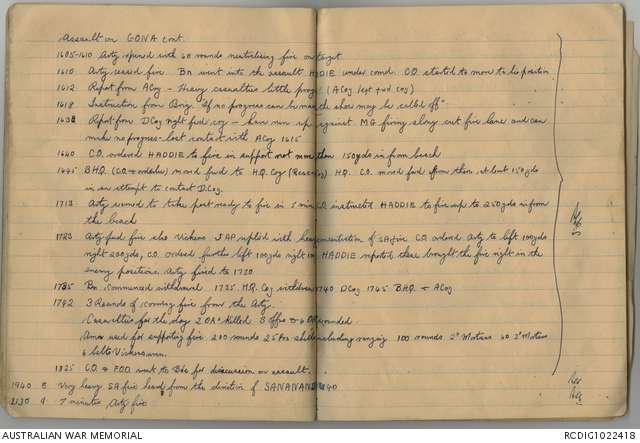 Assault on GONA cont.
1605-1610 Arty opened with 60 rounds neutralising fire on target
1610 Arty ceased fire. Bn went into the assault HADDIE under comd. CO started to move to his position
1612 Report from A Coy - Heavy casualties little progress (A Coy left fwd coy)
1618 Instruction from Brig. "If no progress can be made the show may be called off"
Report from D Coy right fwd coy - have run up against MG firing along cut fire lane and can
make no progress - lost contact with A Coy 1615
1640 C.O. ordered HADDIE to fire in support not more than 150 yds in from beach
1645 B.H.Q. moved fwd to H.Q. Coy H.Q. C.O. moved fwd from there at least 150 yds
in an attempt to contact D Coy.
1713 Arty warned to take post ready to fire in 5 min CO instructed HADDIE to fire up to 250 yds in from
the beach
1723 Arty fired fire also Vickers. JAP replied with heavy concentration of SA fire CO. ordered Arty to left 100 yds
right 200 yds, CO. ordered further left 100 yds right HADDIE reported these brought the fire right on the
enemy positions. Arty fired to 1730
1735 Bn commenced withdrawal 1735 H.Q. Coy withdrew 1740 D Coy 1745 B.H.Q. & A Coy
1742 3 Rounds of coming fire from the Arty.
Casualties for the day 2 ORs Killed 3 offrs & ORs wounded
Ammo used for supporting fire 200 rounds 25 Pdr shells including ranging 100 rounds 3" Mortars 60 2" Mortars
6 belts Vickers amn.
1825 C.O. & F.O.O. went to Bde for discussion on assault.
1940 8 Very heavy SA fire heard from the direction of SANANANDA 40
2130 9 7 minutes Arty fire
AUSTRALIAN WAR MEMORIAL
RCDIG1022418